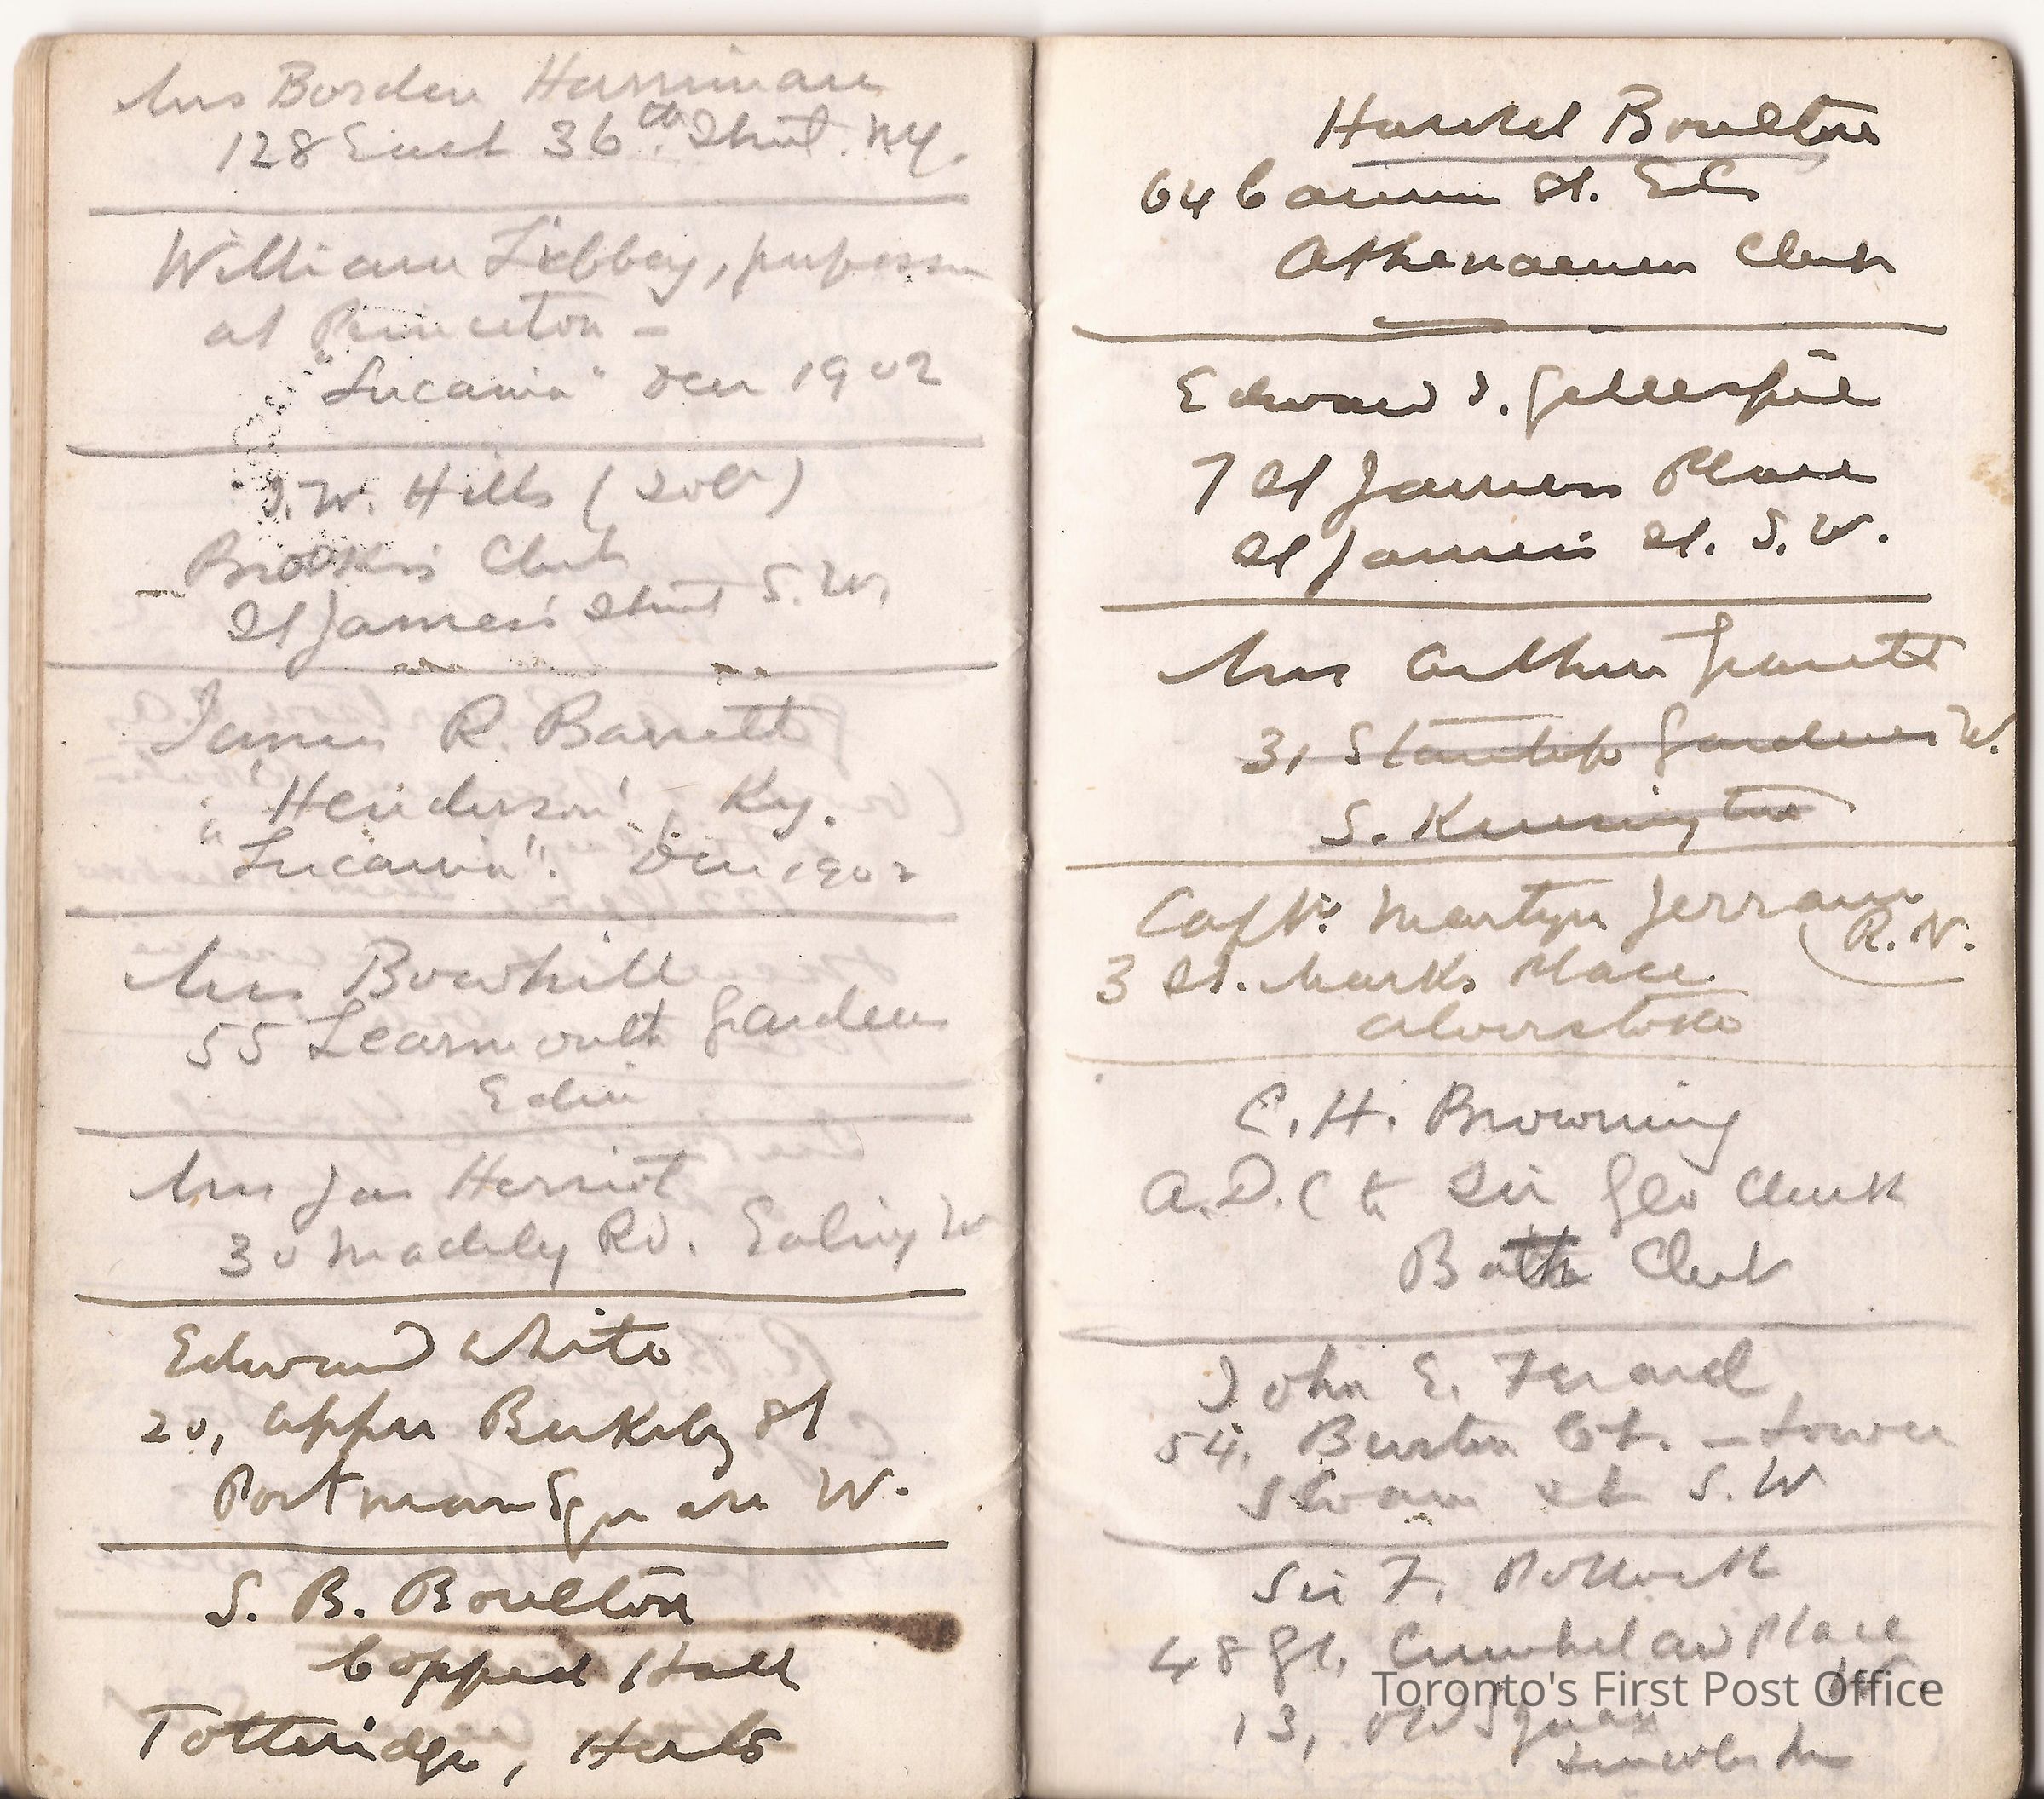 Mrs Borden Harriman
128 East 36th Street. NY.
William Libbey, professor
at Princeton -
"Lucania" Decr 1902
J. W. Hills (Solr)
Brooks's Club
St James's Street S.W.
James R. Barrett
"Henderson", Ky.
"Lucania". Decr 1902
Mrs Bowhill
55 Learmouth Gardens
Edin
Mrs Jas Herriot
30 Madeley Rd. Ealing W
Edward White
20, Upper Berkeley St
Portman Square W.
S. B. Boulton
Copped Hall
Totteridge, Herts
Harold Boulton
64 Cannon St. EC
Athenaeum Club
Edward J. Gillespie
7 St James Place
St James's St. S.W.
Mrs Arthur
31 Stanhope Gardens W.
S. Kensington
Captn. Martyn Jerram
R.N.
3 St. Marks Place
Alverstoke
C. H. Browning
A.D.C to Sir Geo Clerk
Bath Club
John E. Ferard,
54, Burton Ct. - Lower
Sloane St S.W
Sir F. Pollock
48 Gt. Cumberland Place
W
Toronto's First Post Office
13, Old Square
Lincolns Inn